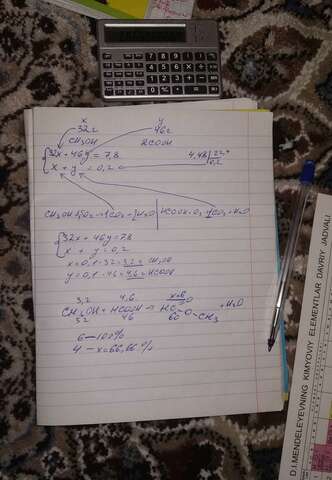 x y
32 г 46 г
CH₃OH HCOOH
{32x + 46y = 7,8 4,48/22,4
x + y = 0,2 0,2
CH₃OH O₂ → CO₂ + H₂O | HCOOH O₂ CO₂ + H₂O
{32x + 46y = 7,8
x + y = 0,2
x = 0,1·32 = 3,2 г CH₃OH
y = 0,1·46 = 4,6 г HCOOH
3,2 4,6 x=6
CH₃OH + HCOOH → HC=O-O-CH₃ + H₂O
32 46 60
6 — 100%
4 — x = 66,66%
D.I.MENDELEYEVNING KIMYOVIY ELEMENTLAR DAVRIY JADVALI